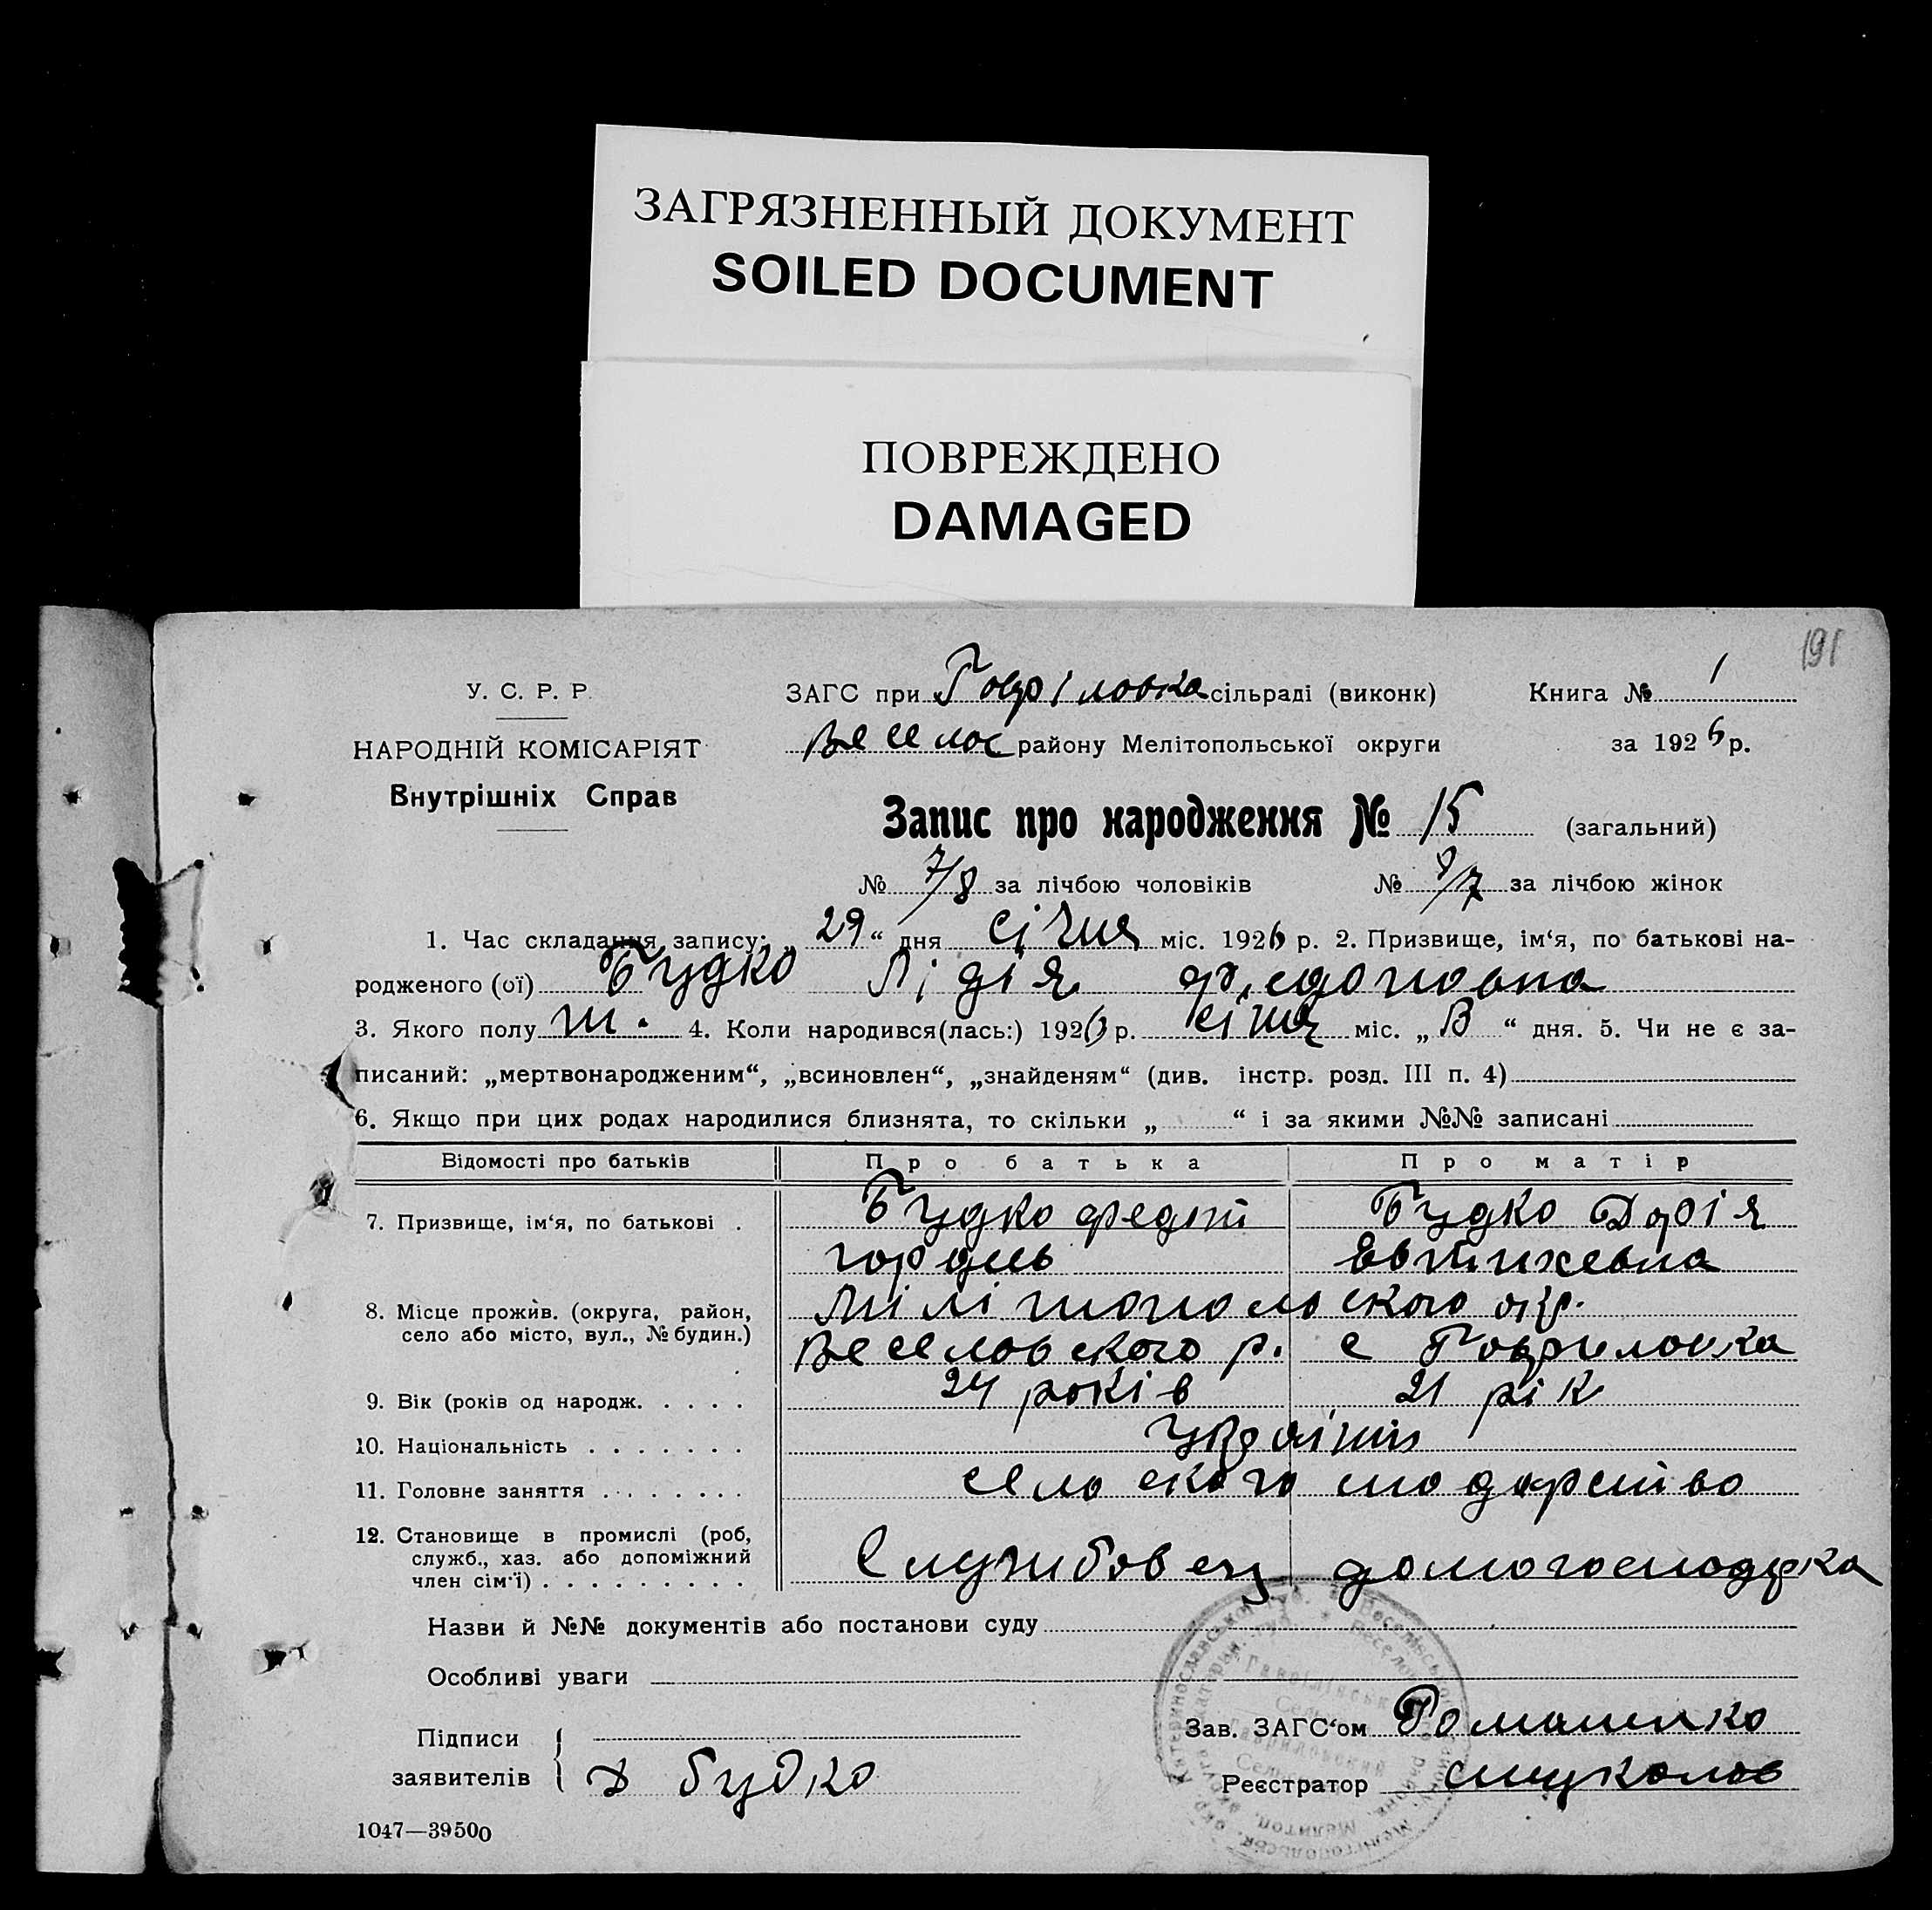 ЗАГРЯЗНЕННЫЙ ДОКУМЕНТ
SOILED DOCUMENT
ПОВРЕЖДЕНО
DAMAGED
191
У. С. Р. Р.
НАРОДНІЙ КОМІСАРІЯТ
Внутрішніх Справ
ЗАГС при Говріловка сільраді (виконк) Книга № 1
Веселос району Мелітопольської округи за 1926 р.
Запис про народження № 15 (загальний)
№ 7/8 за лічбою чоловіків № 8/7 за лічбою жінок
1. Час складання запису: „ 29 “ дня січня міс. 1926 р. 2. Призвище, ім‘я, по батькові на-
родженого (ої) Будко Лідія Федотовна
3. Якого полу ж. 4. Коли народився(лась:) 1926 р. січня міс. „ “ дня. 5. Чи не є за-
писаний: „мертвонародженим“, „всиновлен“, „знайденям“ (див. інстр. розд. III п. 4)
6. Якщо при цих родах народилися близнята, то скільки „ “ і за якими №№ записані
Відомості про батьків Про батька Про матір
7. Призвище, ім‘я, по батькові . Будко Федот Будко Дарія
Евтихевна
8. Місце прожив. (округа, район, Мілітопольского окр.
село або місто, вул., № будин.) Веселовского р. с Говриловка
9. Вік (років од народж. . . . . 24 років 21 рік
10. Національність . . . . . . . україн
11. Головне заняття . . . . . . . . селоского сподарство
12. Становище в промислі (роб,
служб., хаз. або допоміжний
член сім‘ї) . . . . . . . . . Службовец домогосподрка
Назви й №№ документів або постанови суду
Особливі уваги
Підписи
заявителів Будко
Зав. ЗАГС‘ом Романенко
Реєстратор
1047—39500